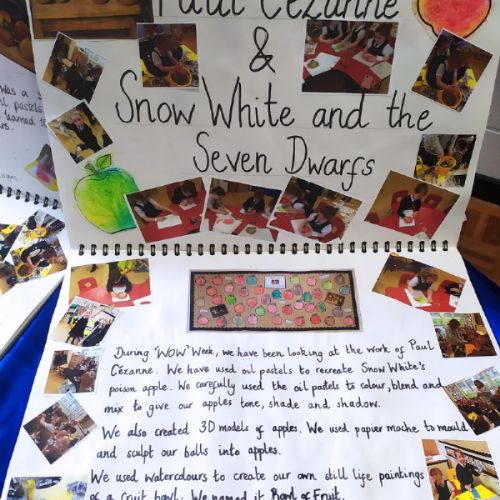 was a s
l pastels
learned t
Paul Cézanne
&
Snow White and the
Seven Dwarfs
During 'WOW' Week, we have been looking at the work of Paul
Cézanne. We have used oil pastels to recreate Snow White's
poison apple. We carefully used the oil pastels to colour, blend and
mix to give our apples tone, shade and shadow.
We also created 3D models of apples. We used papier mache to mould
and sculpt our balls into apples.
We used watercolours to create our own still life paintings
of a fruit bowl. We named it Bowl of Fruit.